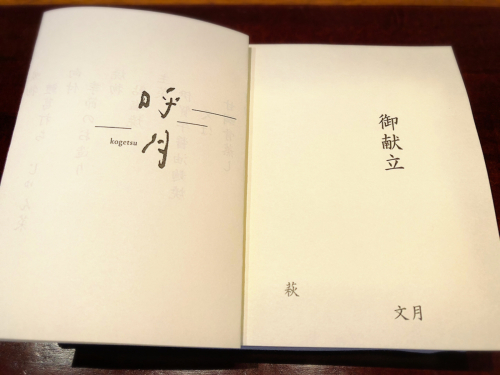 呼月
kogetsu
御献立
萩
文月